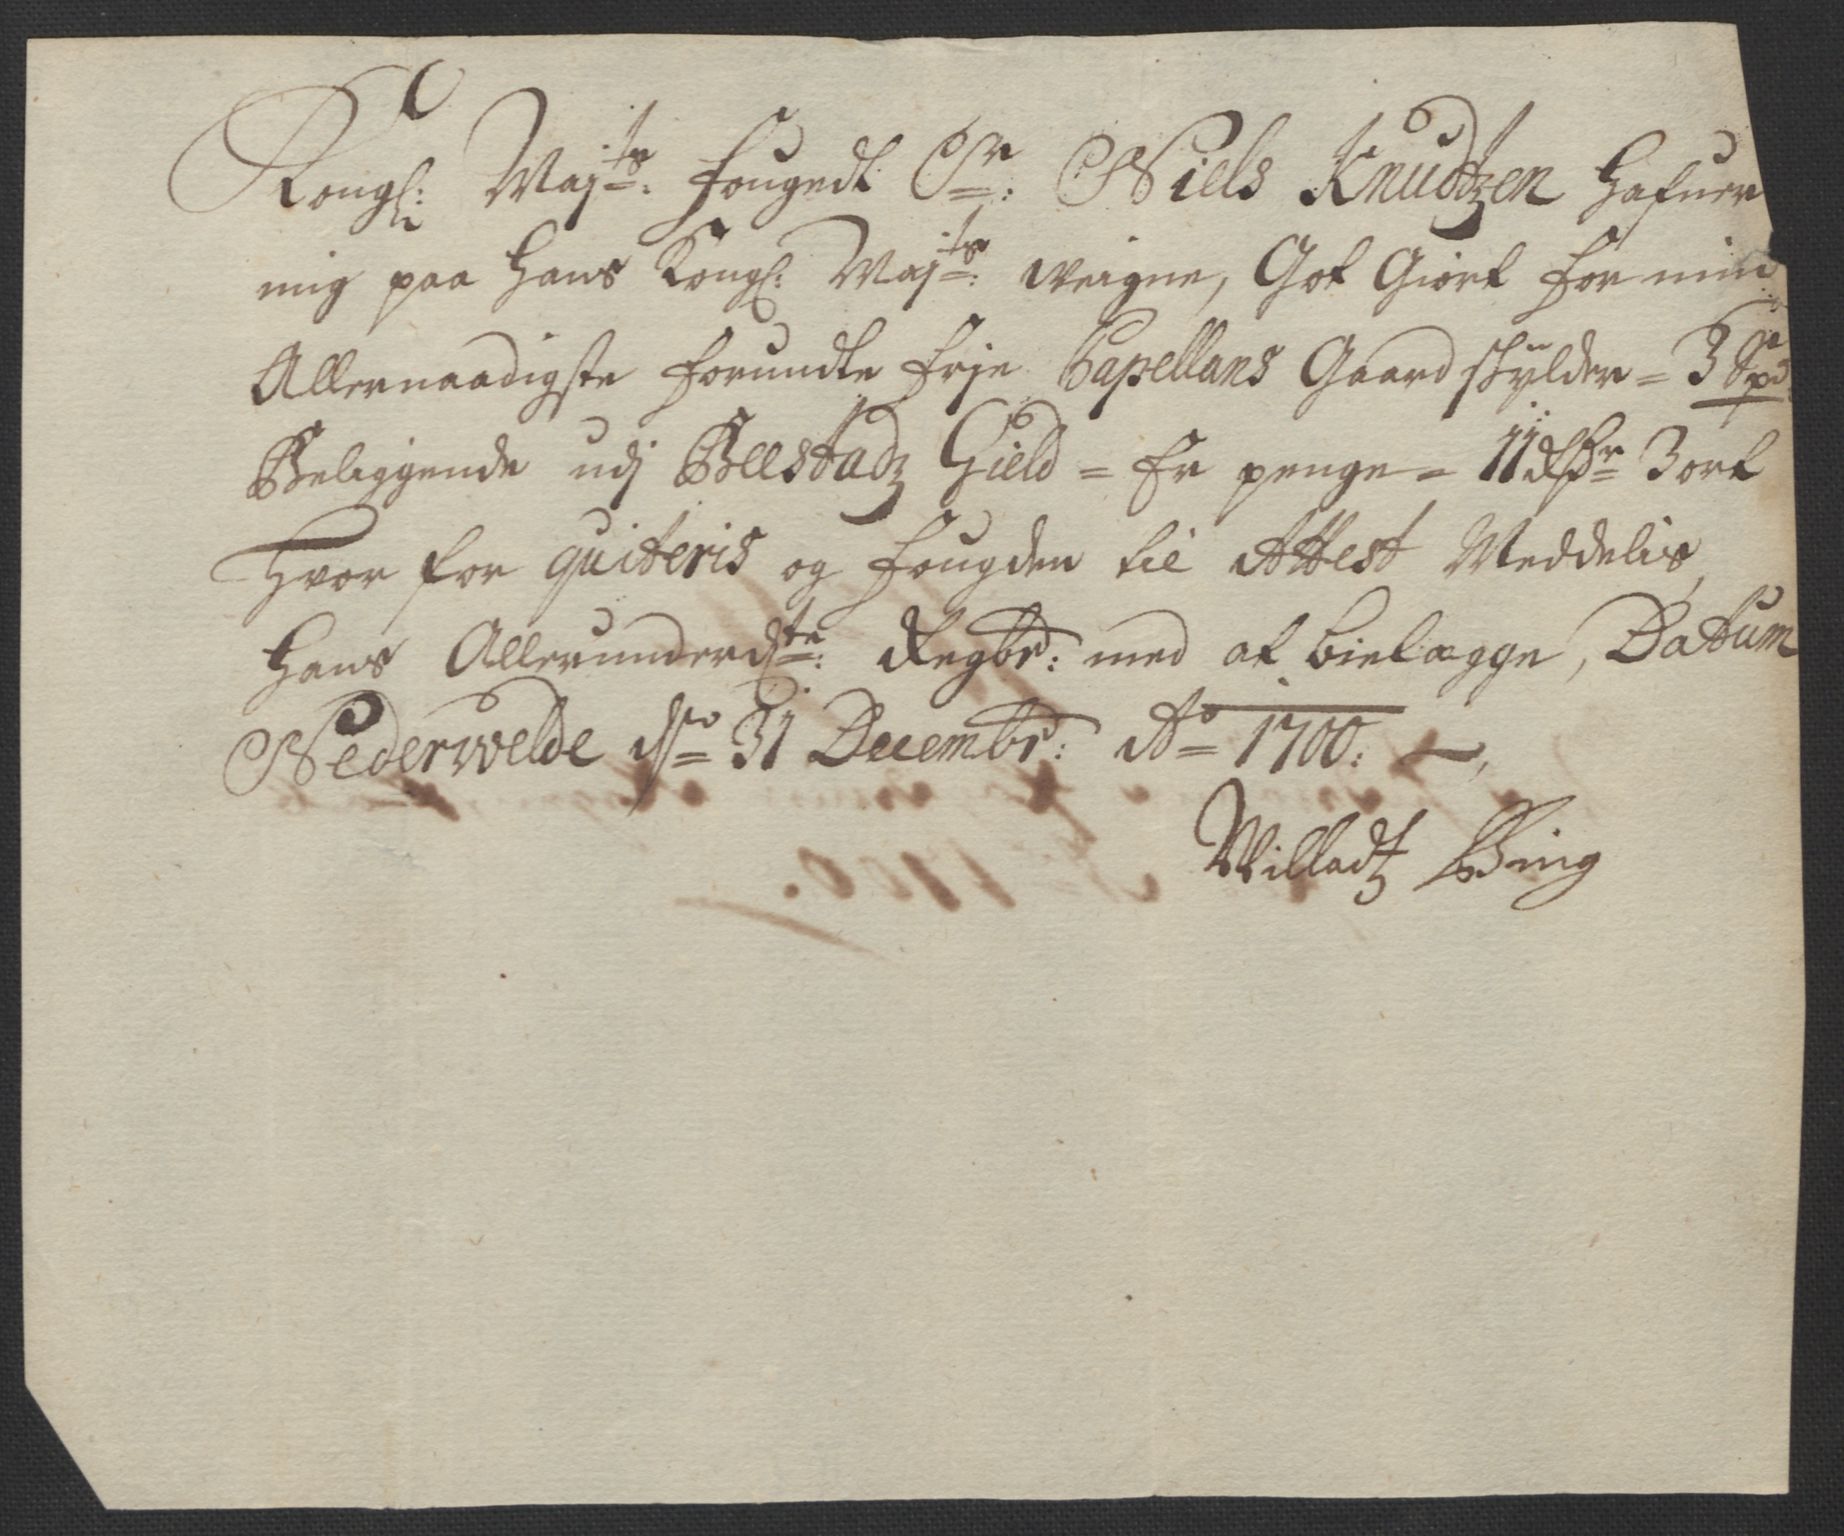 Kongl: Majts: fougedt Sr: Niels Knudtzen hafuer
mig paa hans Kongl: Majts: weigne, Got Giort for min
Allernaadigste forundte frje Capellans Gaard skylder = 3 Spd
Beliggende udj Beestadz Gield = Er penge = 11 dlr 3 ort
Hvor for quiteris og fougden til Attest Meddelis
hans Allerunderdste: Regbr: med at bielægge, Datum
Nederwelde dn 31 Decembr: Ao 1700: —,
Willadtz Bing
1700.